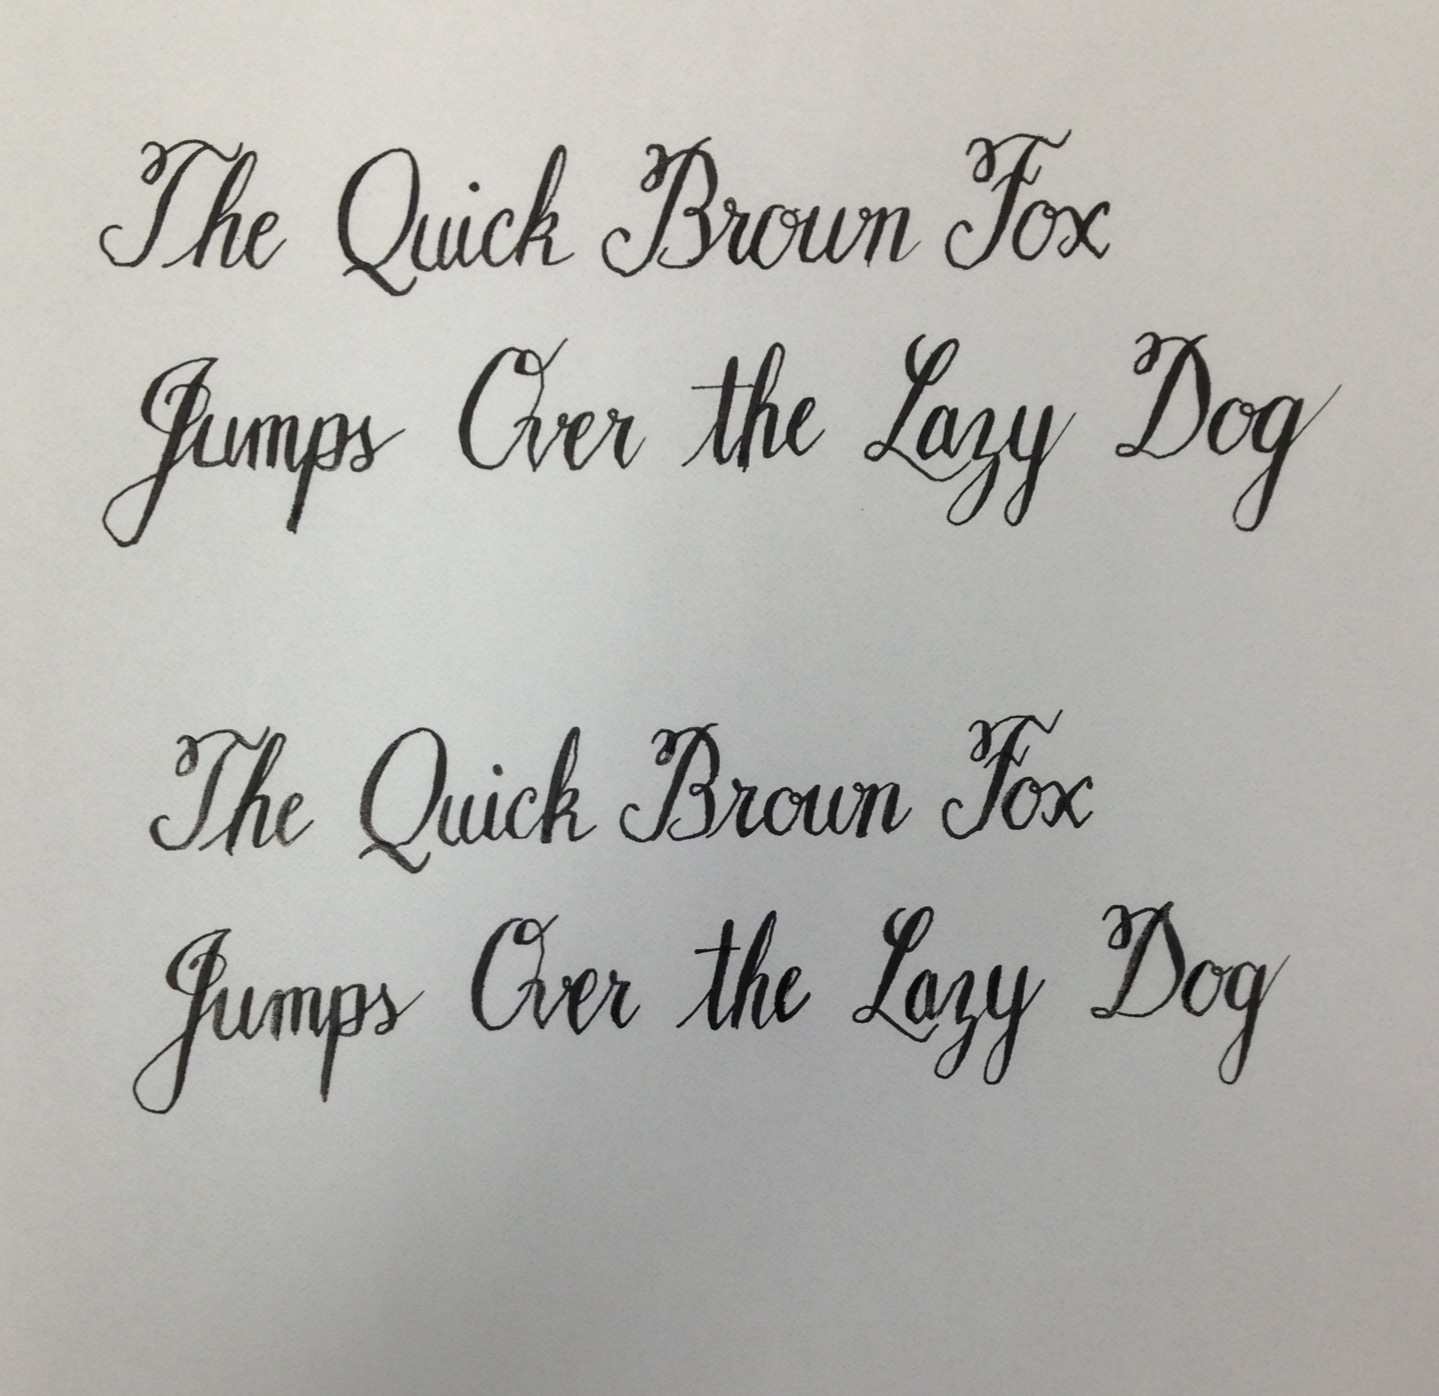 The Quick Brown Fox
Jumps Over the Lazy Dog
The Quick Brown Fox
Jumps Over the Lazy Dog